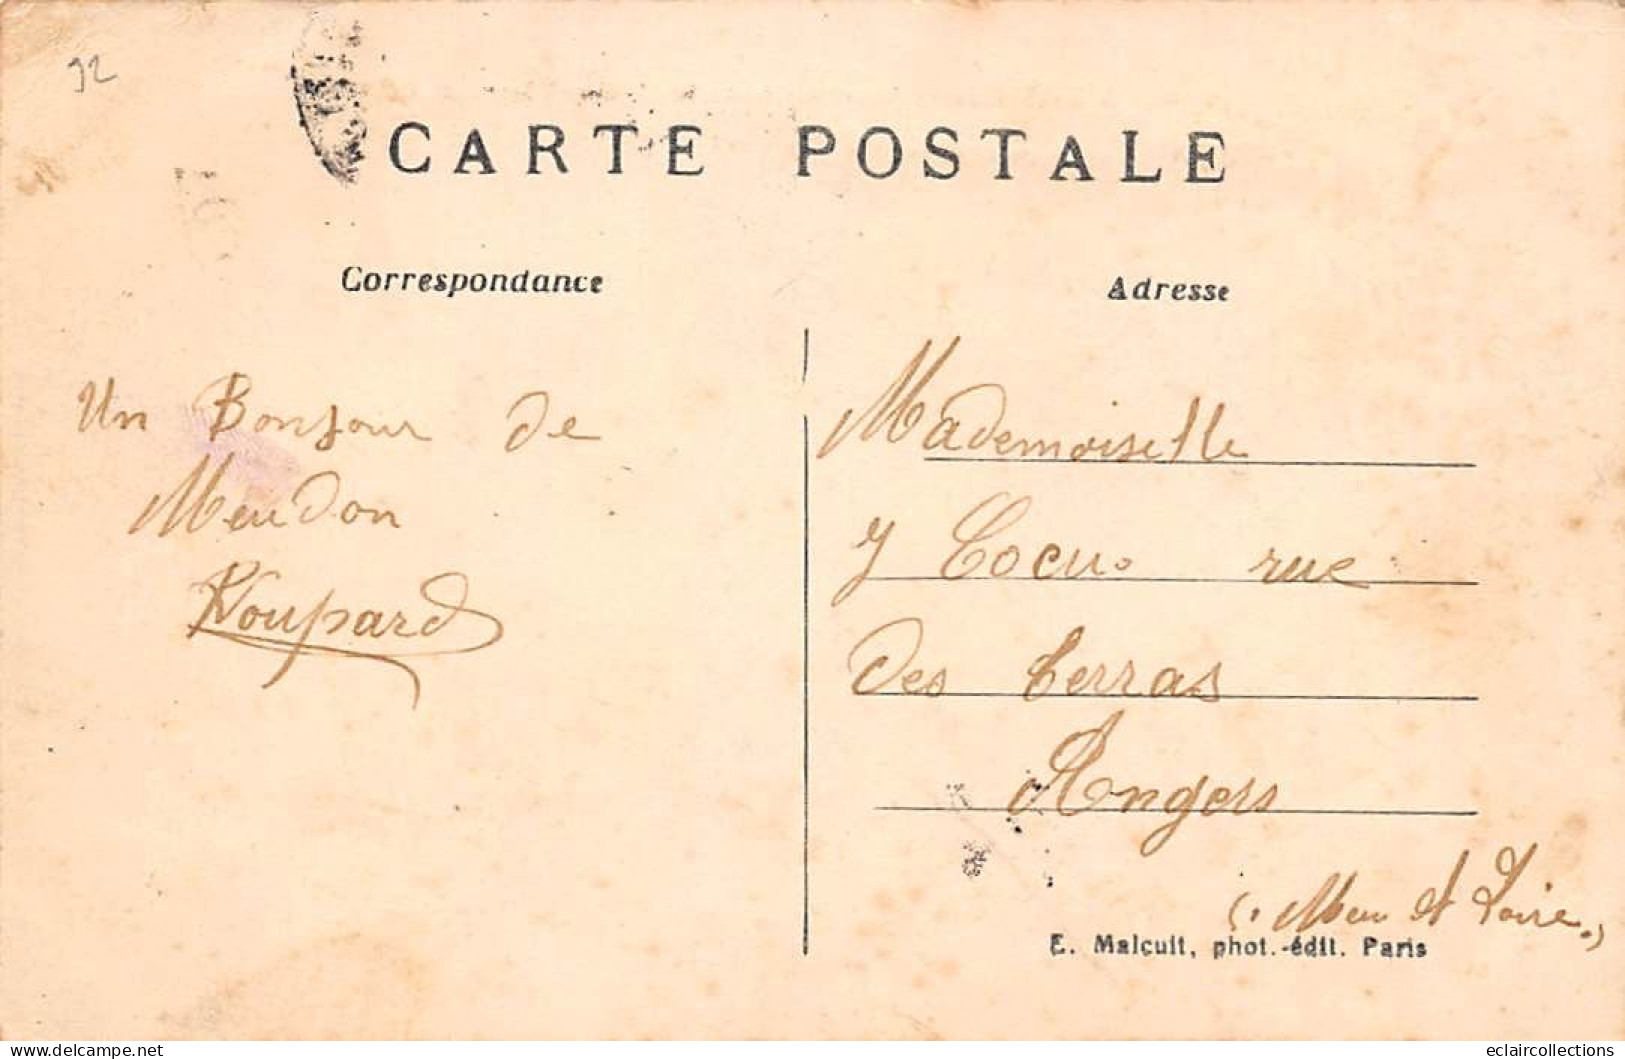 92
CARTE POSTALE
Correspondance
Adresse
Un Bonjour de
Meudon
Mademoiselle
Y Cocu. rue
Des Terras
Angers
(. Men et Loire.)
E. Malcuit, phot.-édit. Paris
delcampe.net
eclaircollections